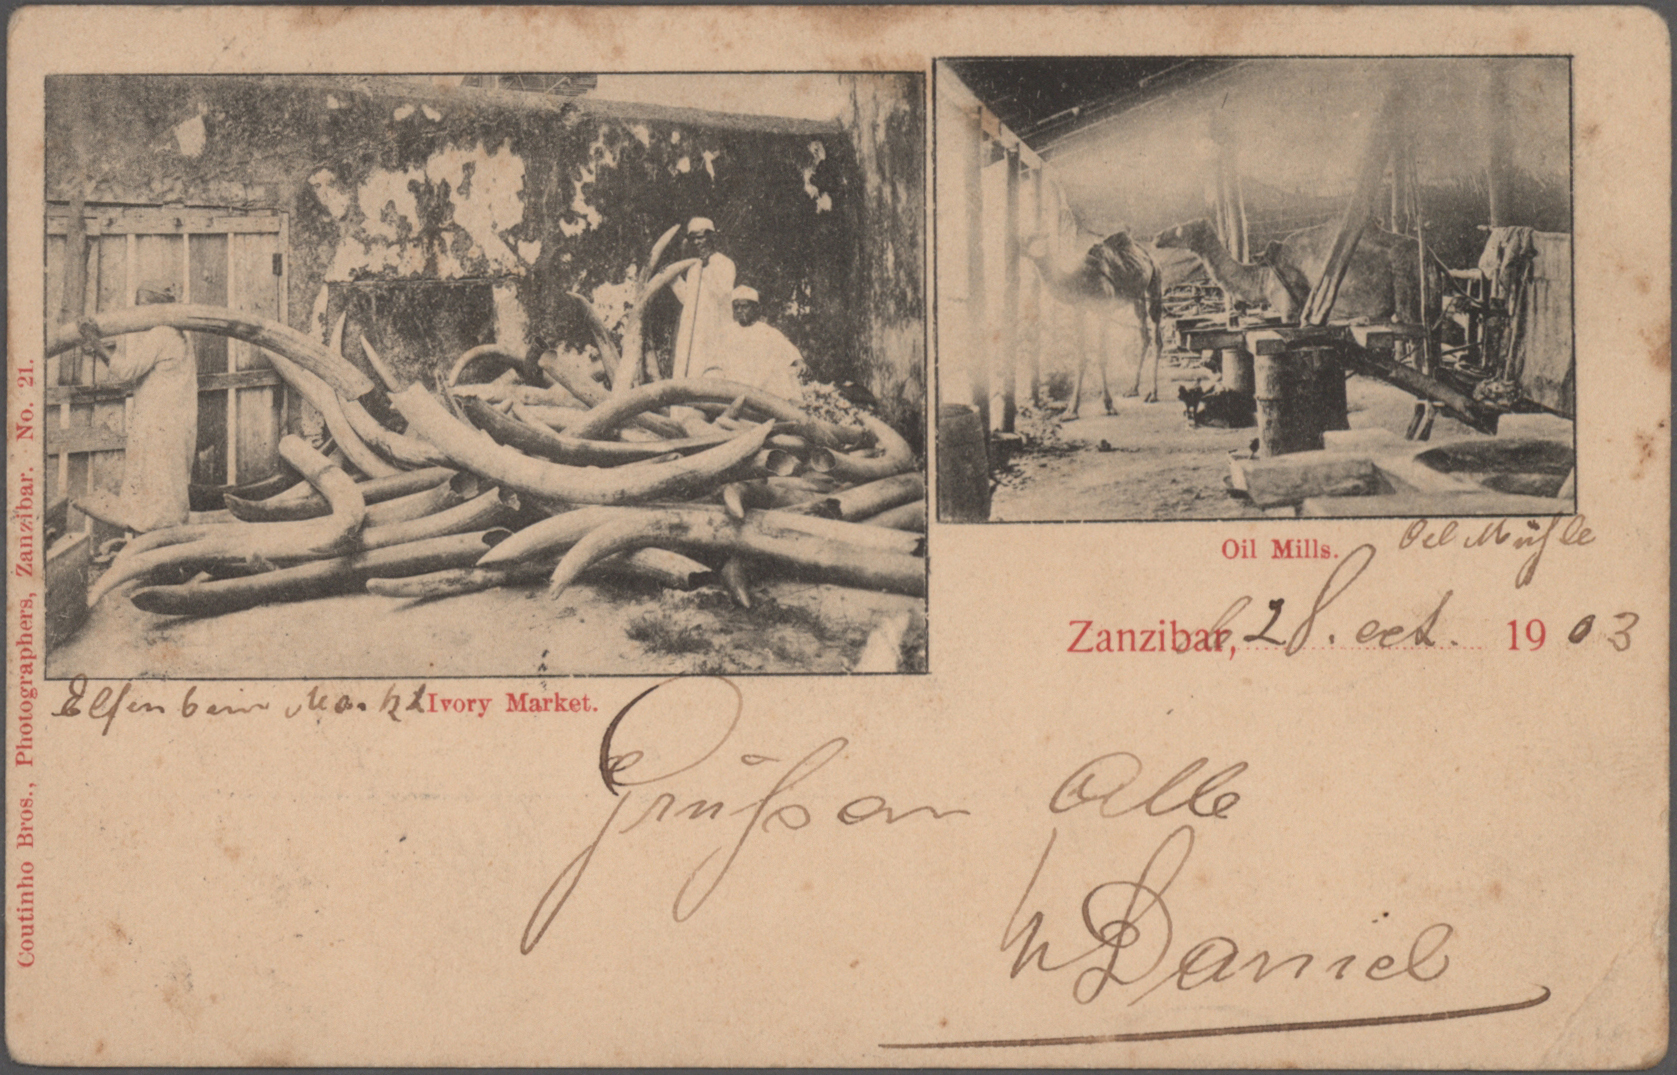 Coutinho Bros., Photographers, Zanzibar. No. 21.
Oil Mills. Oel Mühle
Zanzibar, d 28. oct. 1903
Elfenbein Markt Ivory Market.
Grüssen Alle
Daniel